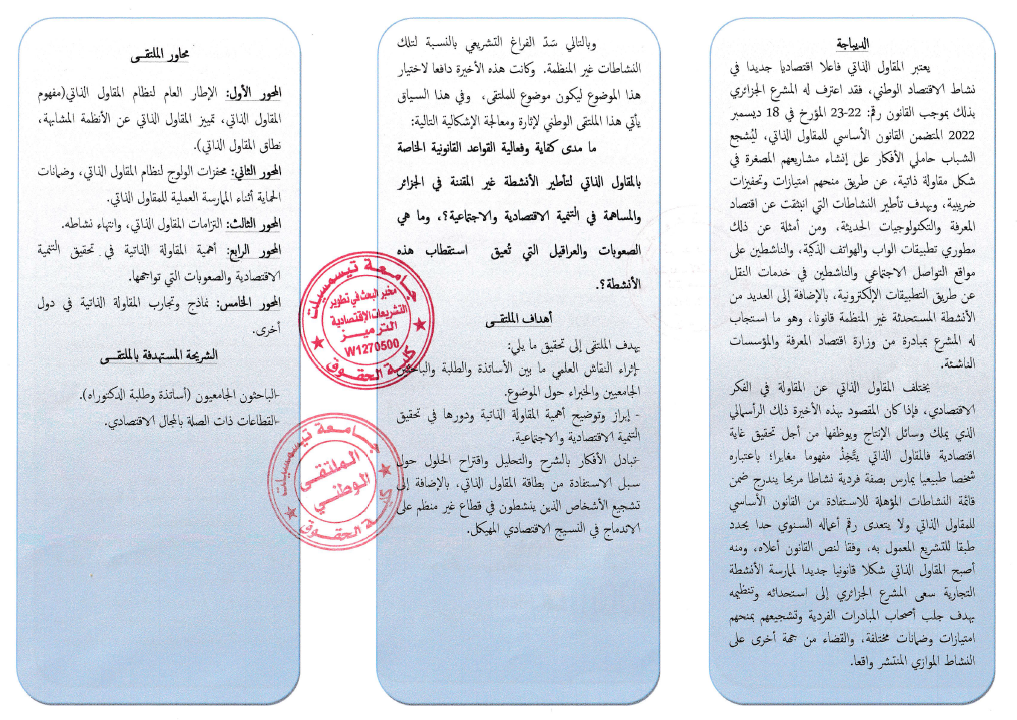 الديباجة
يعتبر المقاول الذاتي فاعلا اقتصاديا جديدا في
نشاط الاقتصاد الوطني، فقد اعترف له المشرع الجزائري
بذلك بموجب القانون رقم: 22-23 المؤرخ في 18 ديسمبر
2022 المتضمن القانون الأساسي للمقاول الذاتي، ليُشجع
الشباب حاملي الأفكار على إنشاء مشاريعهم المصغرة في
شكل مقاولة ذاتية، عن طريق منحهم امتيازات وتحفيزات
ضريبية، وبهدف تأطير النشاطات التي انبثقت عن اقتصاد
المعرفة والتكنولوجيات الحديثة، ومن أمثلة عن ذلك
مطوري تطبيقات الواب والهواتف الذكية، والناشطين على
مواقع التواصل الاجتماعي والناشطين في خدمات النقل
عن طريق التطبيقات الإلكترونية، بالإضافة إلى العديد من
الأنشطة المستحدثة غير المنظمة قانونا، وهو ما استجاب
له المشرع بمبادرة من وزارة اقتصاد المعرفة والمؤسسات
الناشئة.
يختلف المقاول الذاتي عن المقاولة في الفكر
الاقتصادي، فإذا كان المقصود بهذه الأخيرة ذلك الرأسمالي
الذي يملك وسائل الإنتاج ويوظفها من أجل تحقيق غاية
اقتصادية فالمقاول الذاتي يتَّخِذُ مفهوما مغايرا؛ باعتباره
شخصا طبيعيا يمارس بصفة فردية نشاطا مربحا يندرج ضمن
قائمة النشاطات المؤهلة للاستفادة من القانون الأساسي
للمقاول الذاتي ولا يتعدى رقم أعماله السنوي حدا يحدد
طبقا للتشريع المعمول به، وفقا لنص القانون أعلاه، ومنه
أصبح المقاول الذاتي شكلا قانونيا جديدا لممارسة الأنشطة
التجارية سعى المشرع الجزائري إلى استحداثه وتنظيمه
بهدف جلب أصحاب المبادرات الفردية وتشجيعهم بمنحهم
امتيازات وضمانات مختلفة، والقضاء من جهة أخرى على
النشاط الموازي المنتشر واقعا.
وبالتالي سَدّ الفراغ التشريعي بالنسبة لتلك
النشاطات غير المنظمة. وكانت هذه الأخيرة دافعا لاختيار
هذا الموضوع ليكون موضوع للملتقى، وفي هذا السياق
يأتي هذا الملتقى الوطني لإثارة ومعالجة الإشكالية التالية:
ما مدى كفاية وفعالية القواعد القانونية الخاصة
بالمقاول الذاتي لتأطير الأنشطة غير المقننة في الجزائر
والمساهمة في التنمية الاقتصادية والاجتماعية؟. وما هي
الصعوبات والعراقيل التي تُعيق استقطاب هذه
الأنشطة؟.
أهداف الملتقى
يهدف الملتقى إلى تحقيق ما يلي:
-إثراء النقاش العلمي ما بين الأساتذة والطلبة والباحثين
الجامعيين والخبراء حول الموضوع.
- إبراز وتوضيح أهمية المقاولة الذاتية ودورها في تحقيق
التنمية الاقتصادية والاجتماعية.
-تبادل الأفكار بالشرح والتحليل واقتراح الحلول حول
سبل الاستفادة من بطاقة المقاول الذاتي، بالإضافة إلى
تشجيع الأشخاص الذين ينشطون في قطاع غير منظم على
الاندماج في النسيج الاقتصادي المهيكل.
محاور الملتقى
المحور الأول: الإطار العام لنظام المقاول الذاتي(مفهوم
المقاول الذاتي، تمييز المقاول الذاتي عن الأنظمة المشابهة،
نطاق المقاول الذاتي).
المحور الثاني: محفزات الولوج لنظام المقاول الذاتي، وضمانات
الحماية أثناء الممارسة العملية للمقاول الذاتي.
المحور الثالث: التزامات المقاول الذاتي، وانتهاء نشاطه.
المحور الرابع: أهمية المقاولة الذاتية في تحقيق التنمية
الاقتصادية والصعوبات التي تواجهها.
المحور الخامس: نماذج وتجارب المقاولة الذاتية في دول
أخرى.
الشريحة المستهدفة بالملتقى
-الباحثون الجامعيون (أساتذة وطلبة الدكتوراه).
-القطاعات ذات الصلة بالمجال الاقتصادي.
جامعة تيسمسيلت
مخبر البحث في تطوير
التشريعات الإقتصادية
الترميز
W1270500
كلية الحقوق
جامعة تيسمسيلت
الملتقى
الوطني
كلية الحقوق